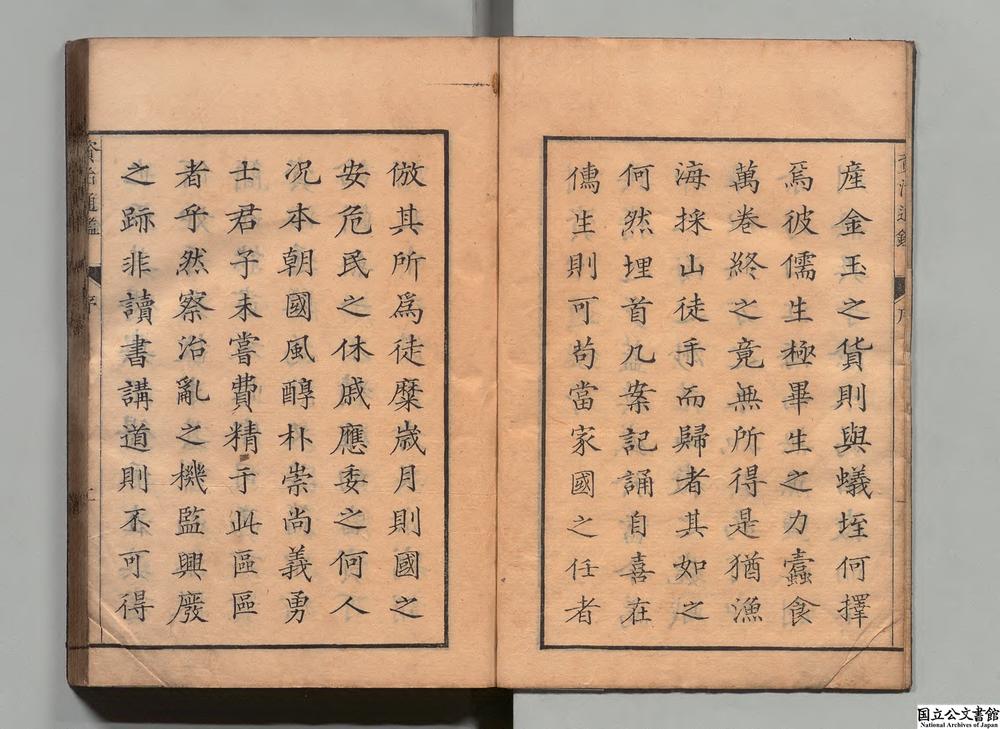 産金玉之貨則與蟻垤何擇
焉彼儒生極畢生之力蠹食
萬卷終之竟無所得是猶漁
海採山徒手而歸者其如之
何然埋首几案記誦自喜在
儒生則可苟當家國之任者
資治通鑑
序
倣其所爲徒糜歳月則國之
安危民之休戚應委之何人
况本朝國風醇朴崇尚義勇
士君子未嘗費精于此區區
者乎然察治亂之機監興廢
之跡非讀書講道則不可得
資治通鑑
序
国立公文書館
National Archives of Japan